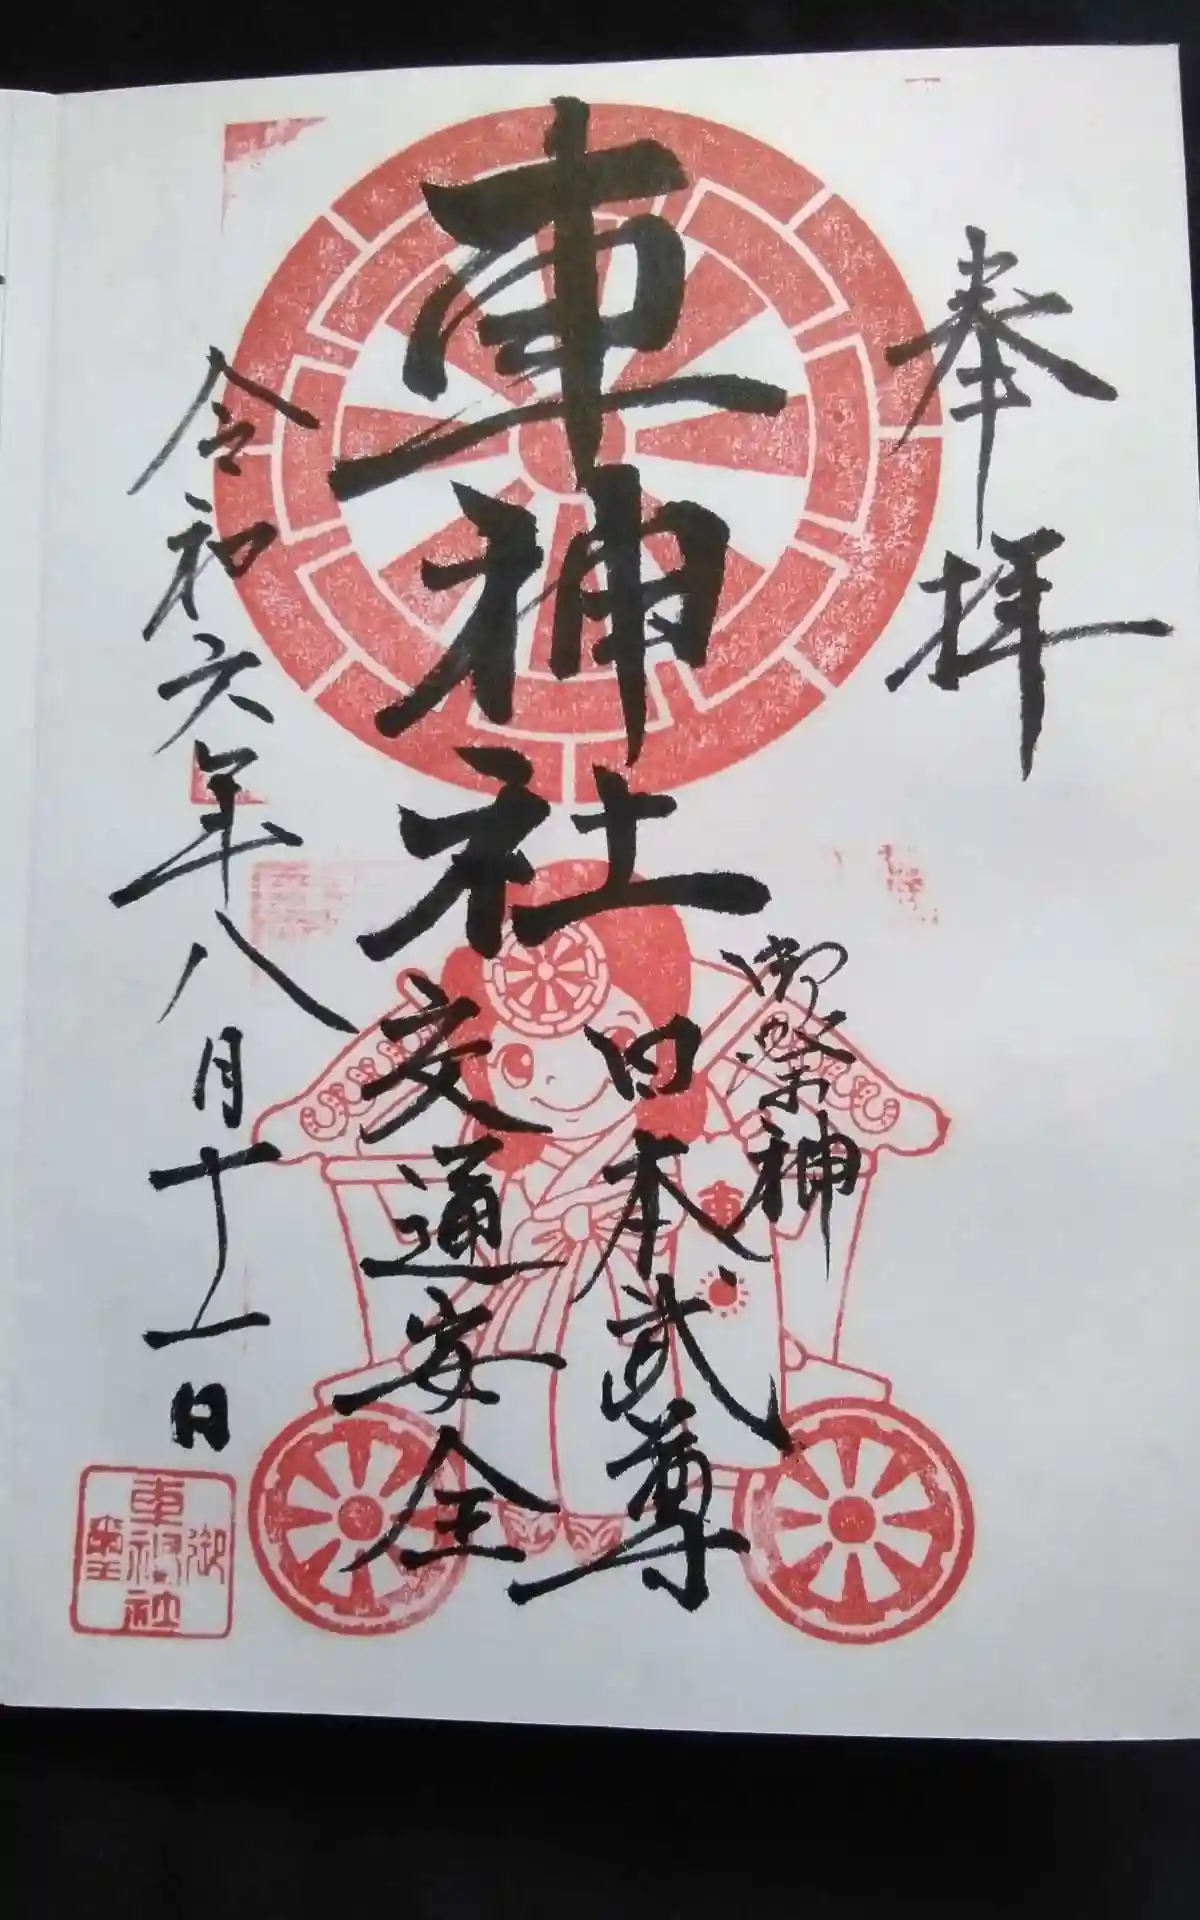 奉拝
御祭神
日本武尊
車神社
交通安全
令和六年八月十一日
御
車神社
璽
車